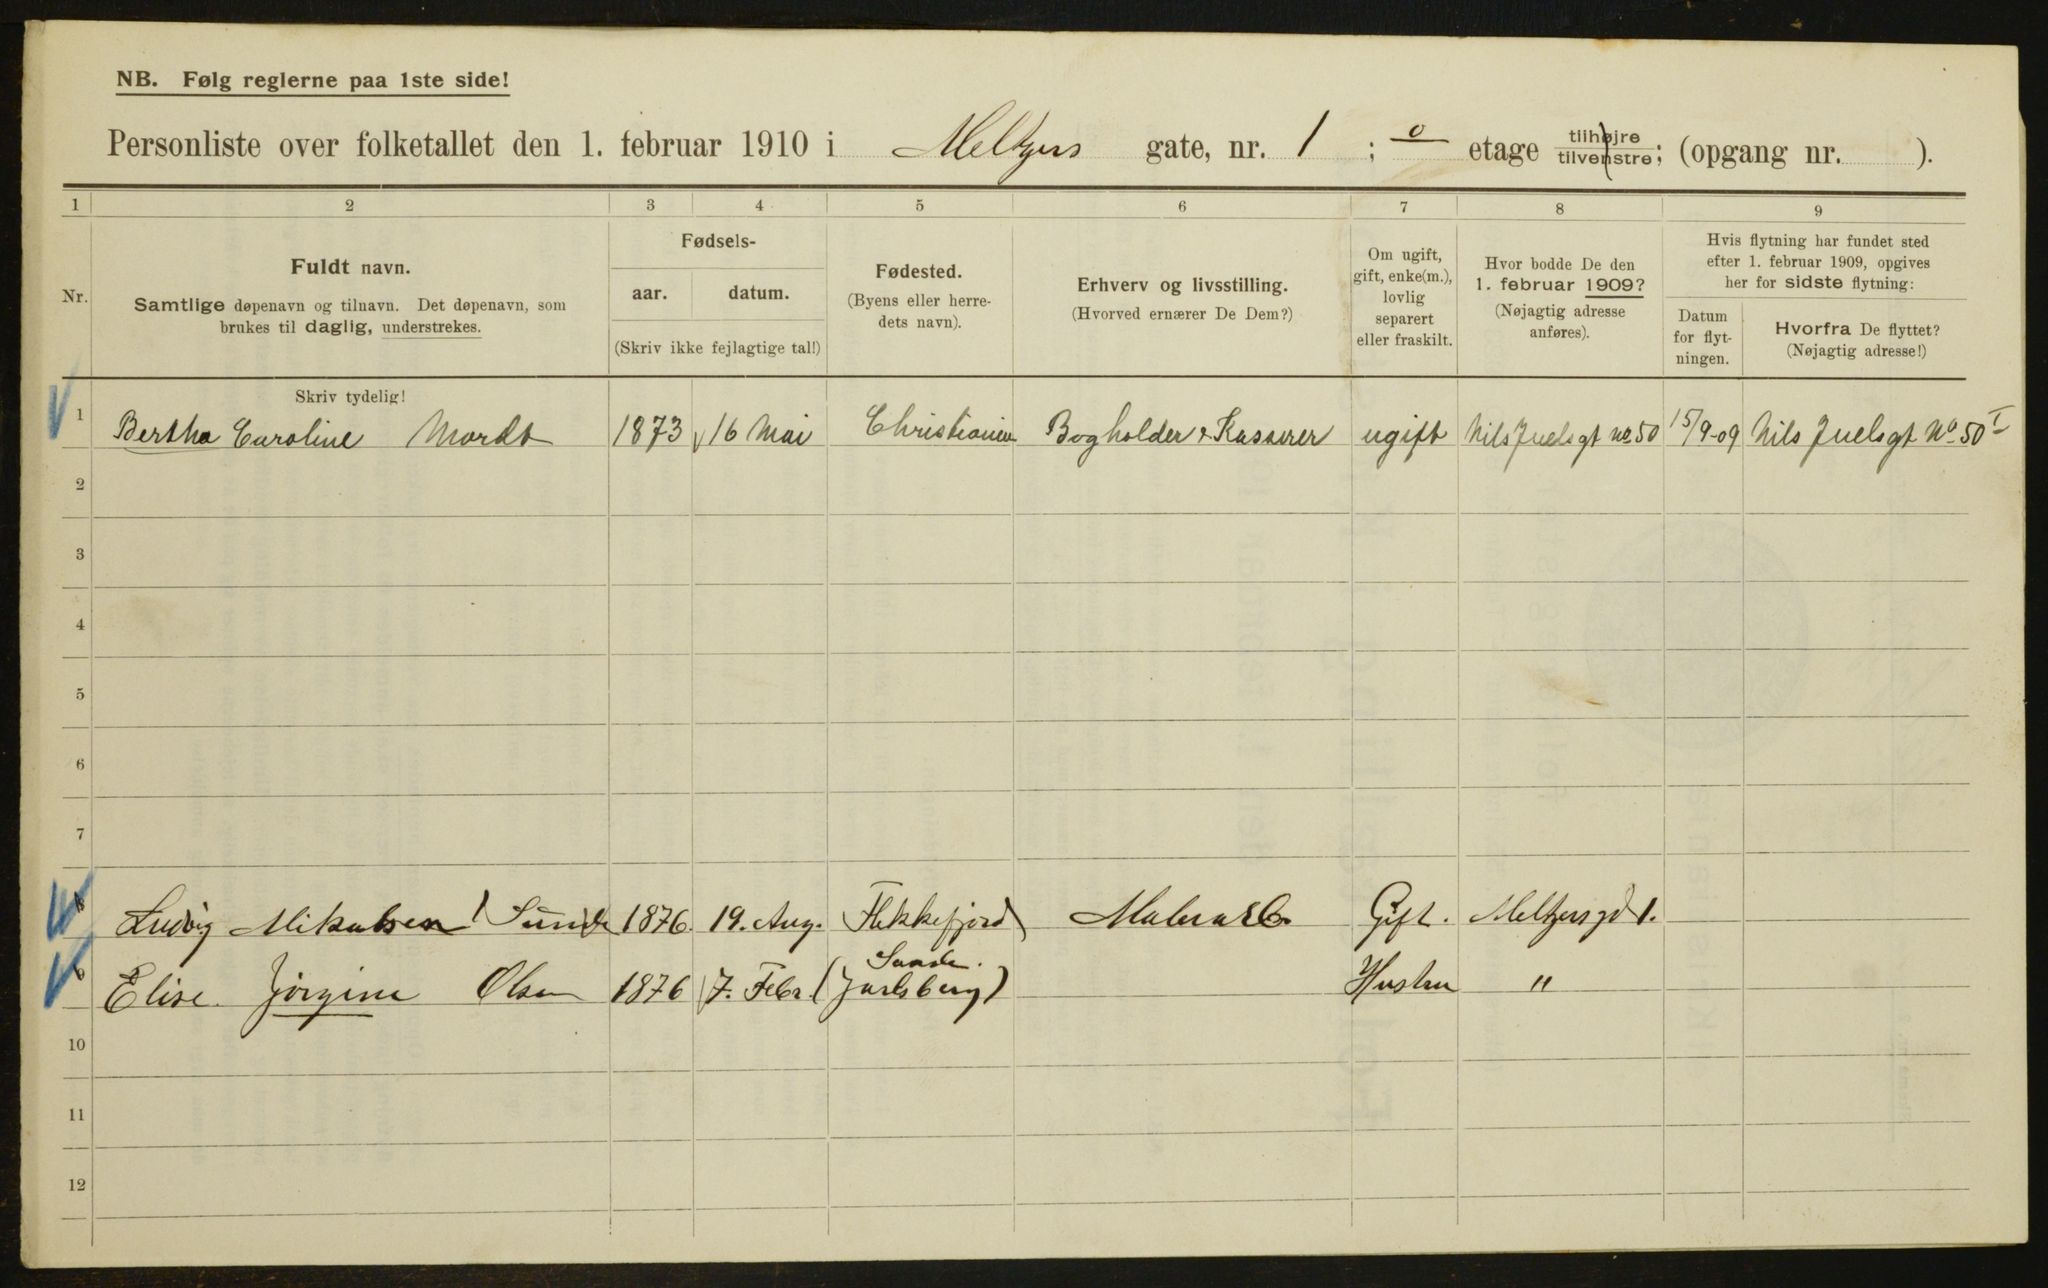 NB. Følg reglerne paa 1ste side!
Personliste over folketallet den 1. februar 1910 i Meltzers gate, nr. 1 ; 0 etage tilhøjre/tilvenstre; (opgang nr. ).
1 2 3 4 5 6 7 8 9
Nr.
Fuldt navn.
Samtlige døpenavn og tilnavn. Det døpenavn, som
brukes til daglig, understrekes.
Fødsels-
aar. datum.
(Skriv ikke fejlagtige tal!)
Fødested.
(Byens eller herre-
dets navn).
Erhverv og livsstilling.
(Hvorved ernærer De Dem?)
Om ugift,
gift, enke(m.),
lovlig
separert
eller fraskilt.
Hvor bodde De den
1. februar 1909?
(Nøjagtig adresse
anføres).
Hvis flytning har fundet sted
efter 1. februar 1909, opgives
her for sidste flytning:
Datum
for flyt-
ningen.
Hvorfra De flyttet?
(Nøjagtig adresse!)
Skriv tydelig!
1 Bertha Caroline Mordt 1873 16 Mai Christiania Bogholder & Kasserer ugift Nils Juelsgt no. 50 15/9-09 Nils Juelsgt No 50 I
2
3
4
5
6
7
8 Ludvig Mikalsen Sunde 1876. 19. Aug. Flekkefjord Gift. Meltzersgd 1.
9 Elise. Jörgine Olsen 1876 7. Febr. Sande (Jarlsberg) Hustru "
10
11
12